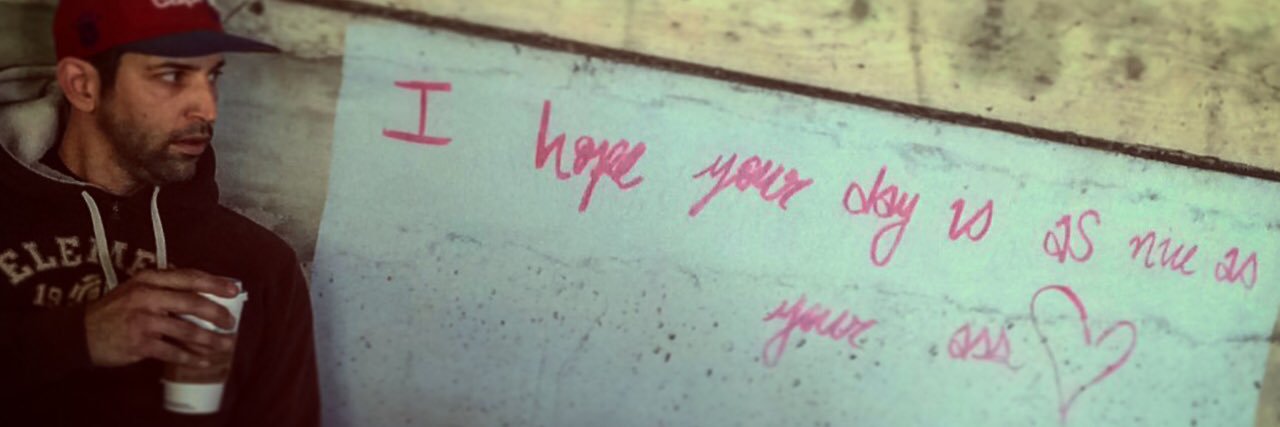 I hope your day is as nice as
your ass
ELEME
19